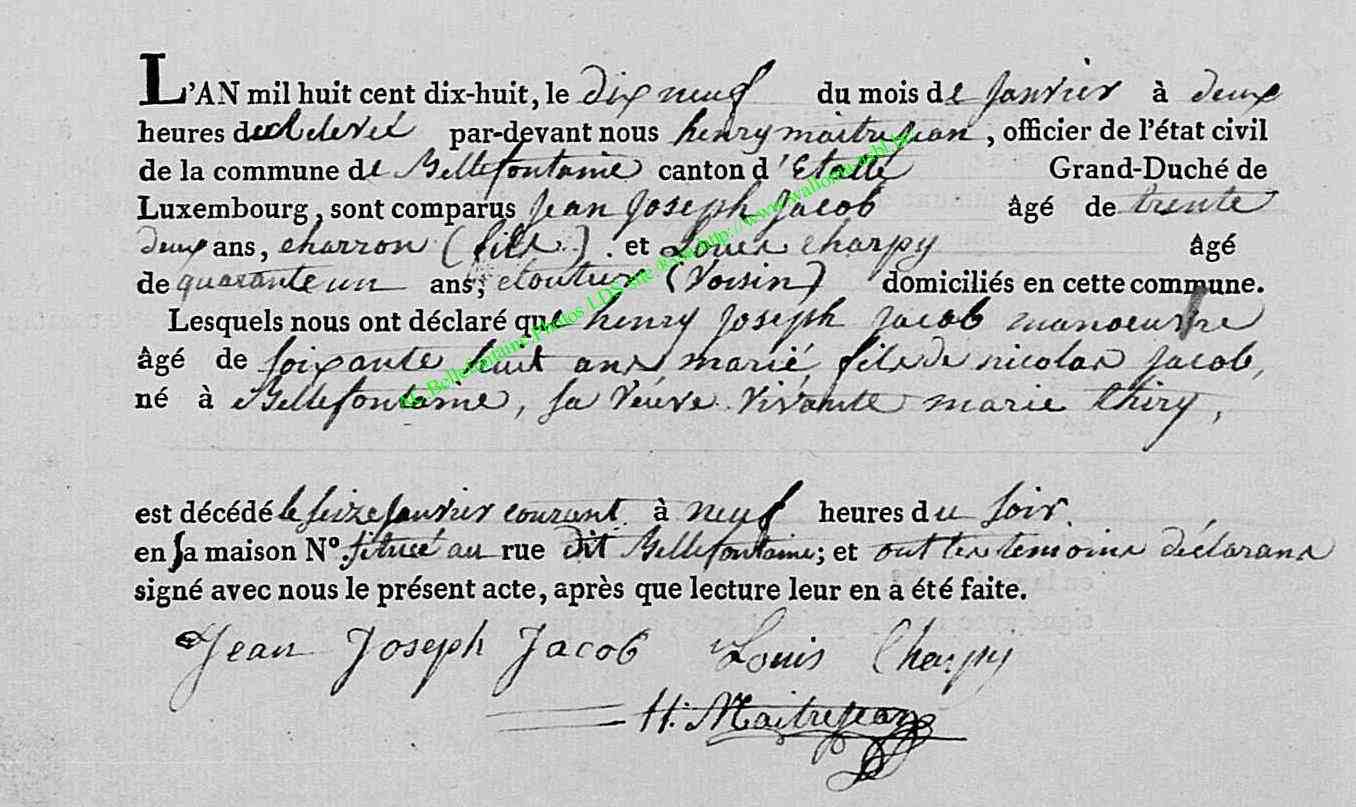 L'AN mil huit cent dix-huit, le dix neuf du mois de Janvier à deux
heures de relevé par-devant nous henry maitrejean, officier de l'état civil
de la commune de Bellefontaine canton d'Etalle Grand-Duché de
Luxembourg, sont comparus Jean Joseph Jacob âgé de trente
deux ans, charron (fils) et Louis Charpy âgé
de quarante un ans, cloutier (Voisin) domiciliés en cette commune.
Lesquels nous ont déclaré que henry Joseph Jacob manoeuvre
âgé de soixante huit ans marié fils de nicolas Jacob,
né à Bellefontaine, sa Veuve Vivante marie thiry,
est décédé le seize Janvier courant à neuf heures du soir
en sa maison N° située au rue dit Bellefontaine; et ont les temoins déclarans
signé avec nous le présent acte, après que lecture leur en a été faite.
Jean Joseph Jacob Louis Charpy
H: Maitrejean
Bellefontaine Photos LDS